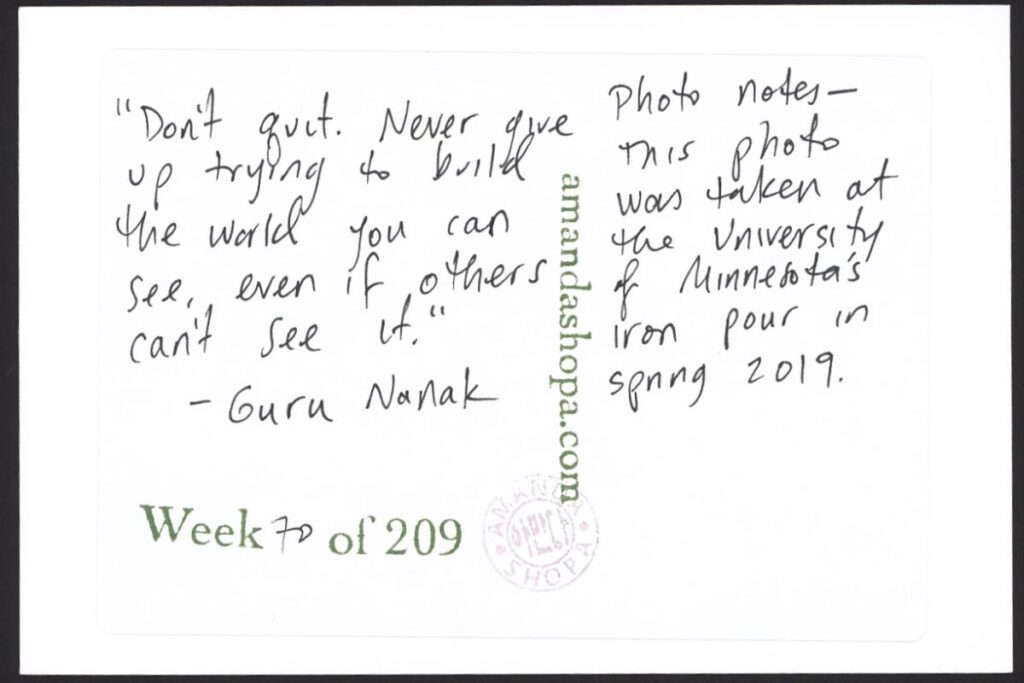 "Don't quit. Never give
up trying to build
the world you can
see, even if others
can't see it."
- Guru Nanak
Photo notes—
This photo
was taken at
the University
of Minnesota's
iron pour in
spring 2019.
amandashopa.com
Week 70 of 209
AMANDA
SHOPA